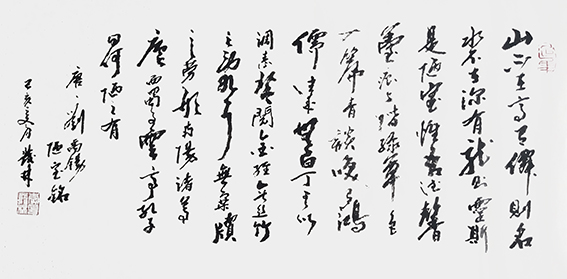 山不在高有僊則名
水不在深有龍則靈斯
是陋室惟吾德馨
苔痕上階綠草色
入簾青談笑有鴻
儒往來無白丁可以
調素琴閱金經無絲竹
之亂耳無案牘
之勞形南陽諸葛
廬西蜀子雲亭孔子
曰何陋之有
唐劉禹錫
陋室銘
己亥